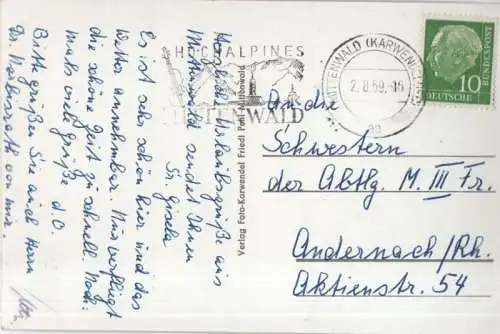 Herzliche Urlaubsgrüße aus
Mittenwald sendet Ihnen
Gisela
Es ist sehr schön hier und das
Wetter annehmbar. Nur verfliegt
die schöne Zeit zu schnell. Noch-
mals viel Grüße d.O.
Bitte grüßen Sie auch Herrn
Dr. von mir.
Verlag Foto-Karwendel Friedl Mittenwald
HOCHALPINES
MITTENWALD
MITTENWALD (KARWENDEL)
2.8.59.-16
DEUTSCHE
BUNDESPOST
10
An die
Schwestern
der Abtlg. M. III Fr.
Andernach/Rh.
Aktienstr. 54